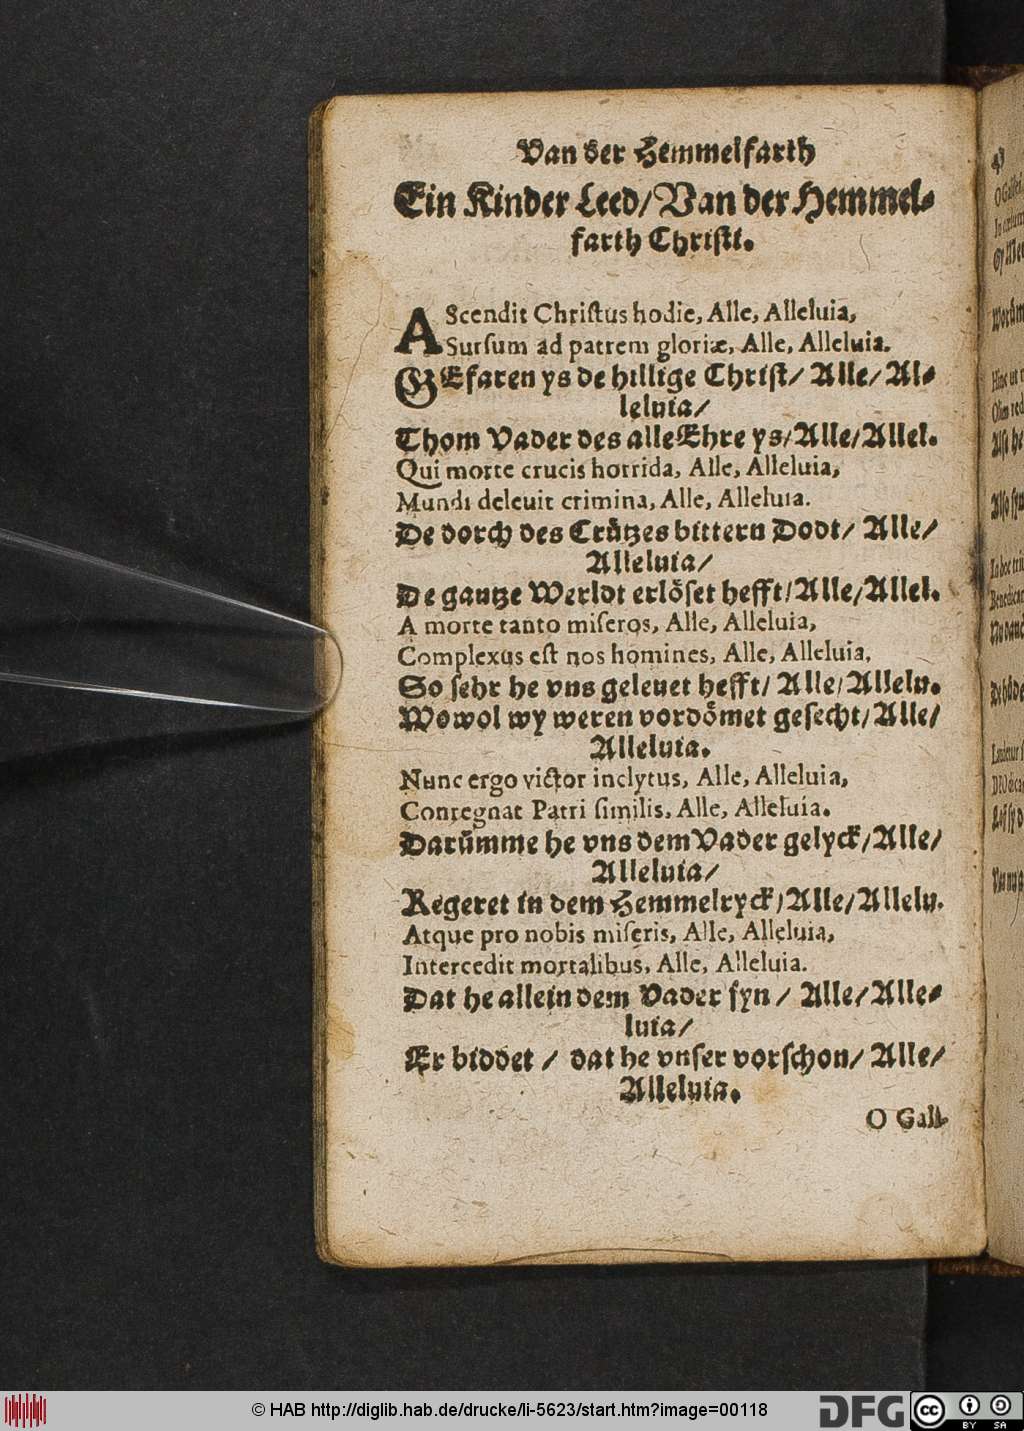 Van der Hemmelfarth
Ein Kinder Leed/ Van der Hemmel-
farth Christi.
AScendit Christus hodie, Alle, Alleluia,
Sursum ad patrem gloriæ, Alle, Alleluia.
GEfaren ys de hillige Christ/ Alle/ Al-
leluia/
Thom Vader des alle Ehre ys/ Alle/ Allel.
Qui morte crucis horrida, Alle, Alleluia,
Mundi deleuit crimina, Alle, Alleluia.
De dorch des Crützes bittern Dodt/ Alle/
Alleluia/
De gantze Werldt erlöset hefft/ Alle/ Allel.
A morte tanto miseros, Alle, Alleluia,
Complexus est nos homines, Alle, Alleluia,
So sehr he vns geleuet hefft/ Alle/ Allelu.
Wowol wy weren vordömet gesecht/ Alle/
Alleluia.
Nunc ergo victor inclytus, Alle, Alleluia,
Conregnat Patri similis, Alle, Alleluia.
Darümme he vns dem Vader gelyck/ Alle/
Alleluia/
Regeret in dem Hemmelryck/ Alle/ Allelu.
Atque pro nobis miseris, Alle, Alleluia,
Intercedit mortalibus, Alle, Alleluia.
Dat he allein dem Vader syn/ Alle/ Alle-
luia/
Er biddet/ dat he vnser vorschon/ Alle/
Alleluia.
O Gali-
© HAB http://diglib.hab.de/drucke/li-5623/start.htm?image=00118
DFG
cc BY SA